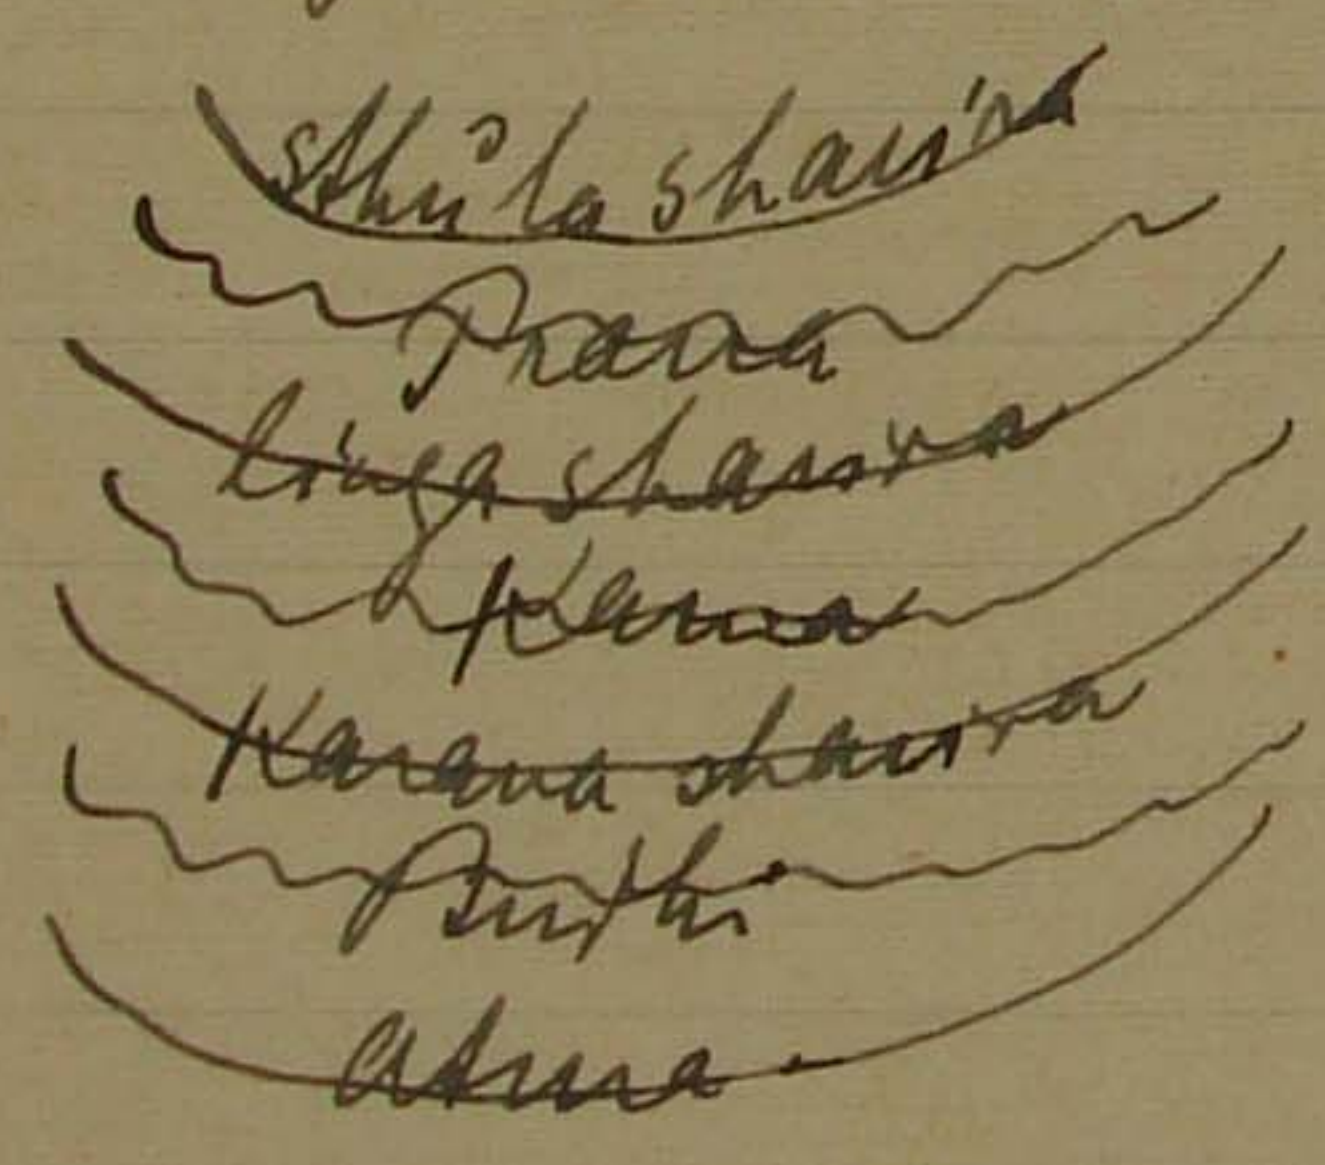 sthūla sharira
Prana
linga sharira
Kama
Karana sharira
Budhi
atma